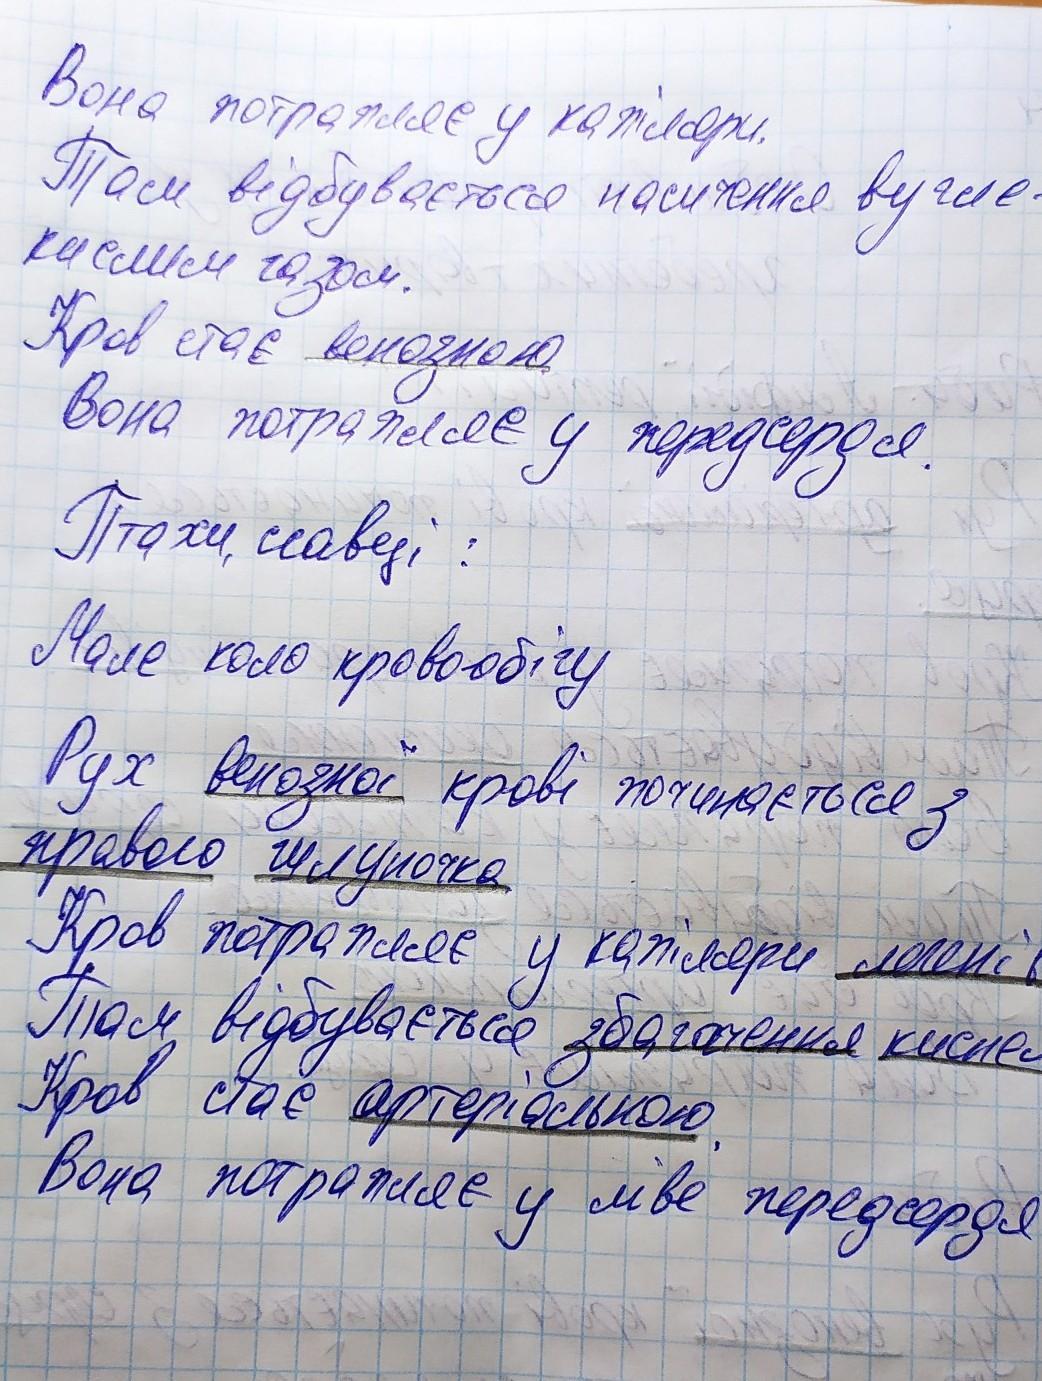 Вона потрапляє у капіляри.
Там відбувається насичення вугле-
кислим газом.
Кров стає венозною
Вона потрапляє у передсердя.
Птахи, ссавці :
Мале коло кровообігу
Рух венозної крові починається з
правого шлуночка
Кров потрапляє у капіляри легенів
Там відбувається збагачення киснем
Кров стає артеріальною.
Вона потрапляє у ліве передсердя